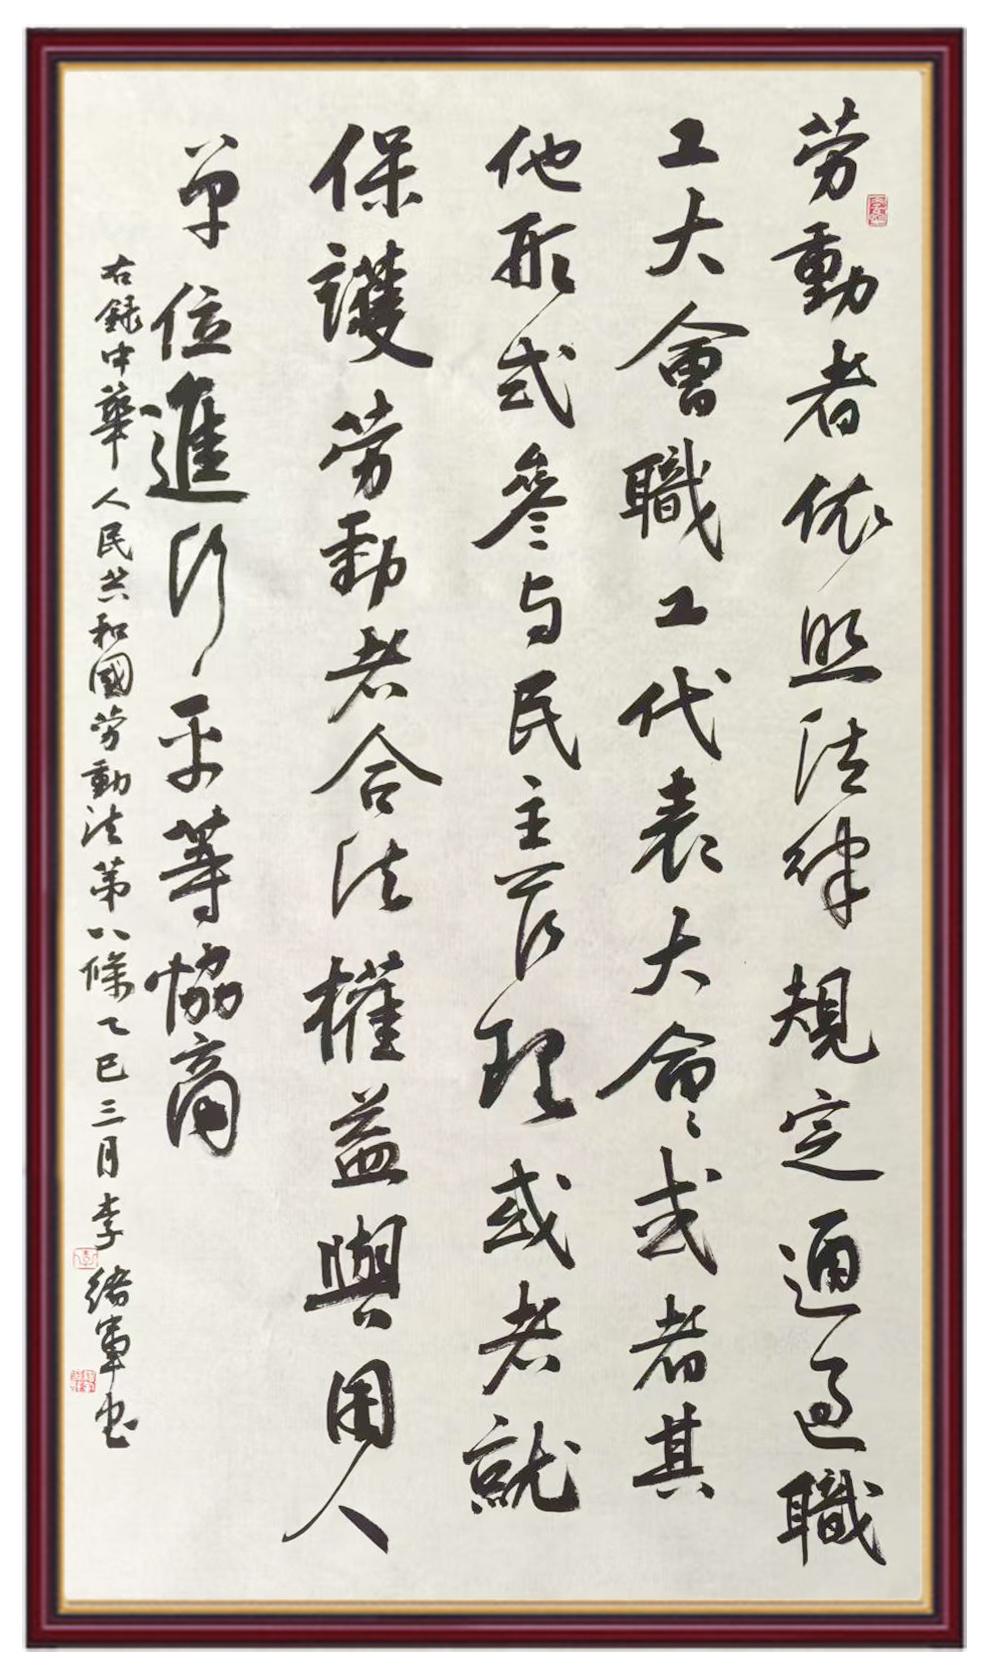 劳動者依照法律規定通過職
工大會職工代表大會或者其
他形式參与民主管理或者就
保護劳動者合法權益與用人
单位進行平等協商
右錄中華人民共和國劳動法第八條乙巳三月李緒軍书